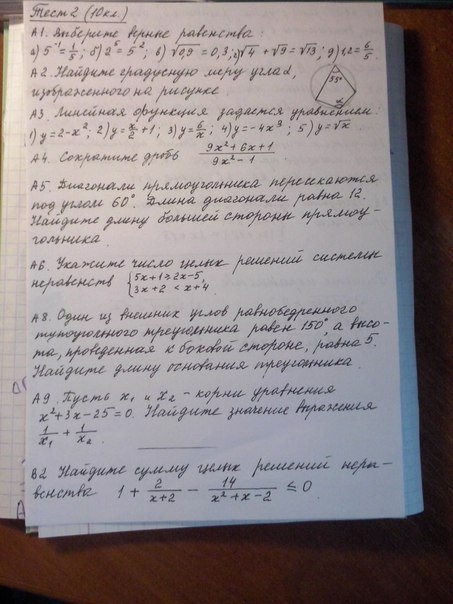 Тест 2 (10кл.)
А1. Выберите верные равенства:
а) 5⁻¹ = 1/5; б) 2⁵ = 5²; в) √0,9 = 0,3; г) √4 + √9 = √13; д) 1,2 = 6/5.
А2. Найдите градусную меру угла α,
изображенного на рисунке.
55°
α
А3. Линейная функция задаётся уравнением:
1) y = 2 - x²; 2) y = x/2 + 1; 3) y = 6/x; 4) y = -4x⁹; 5) y = √x
А4. Сократите дробь (9x² + 6x + 1)/(9x² - 1).
А5. Диагонали прямоугольника пересекаются
под углом 60°. Длина диагонали равна 12.
Найдите длину большей стороны прямоу-
гольника.
А6. Укажите число целых решений системы
неравенств { 5x + 1 ≥ 2x - 5,
3x + 2 < x + 4
А8. Один из внешних углов равнобедренного
тупоугольного треугольника равен 150°, а высо-
та, проведенная к боковой стороне, равна 5.
Найдите длину основания треугольника.
А9. Пусть x₁ и x₂ - корни уравнения
x² + 3x - 25 = 0. Найдите значение выражения
1/x₁ + 1/x₂.
В2 Найдите сумму целых решений нера-
венства 1 + 2/(x+2) - 14/(x² + x - 2) ≤ 0